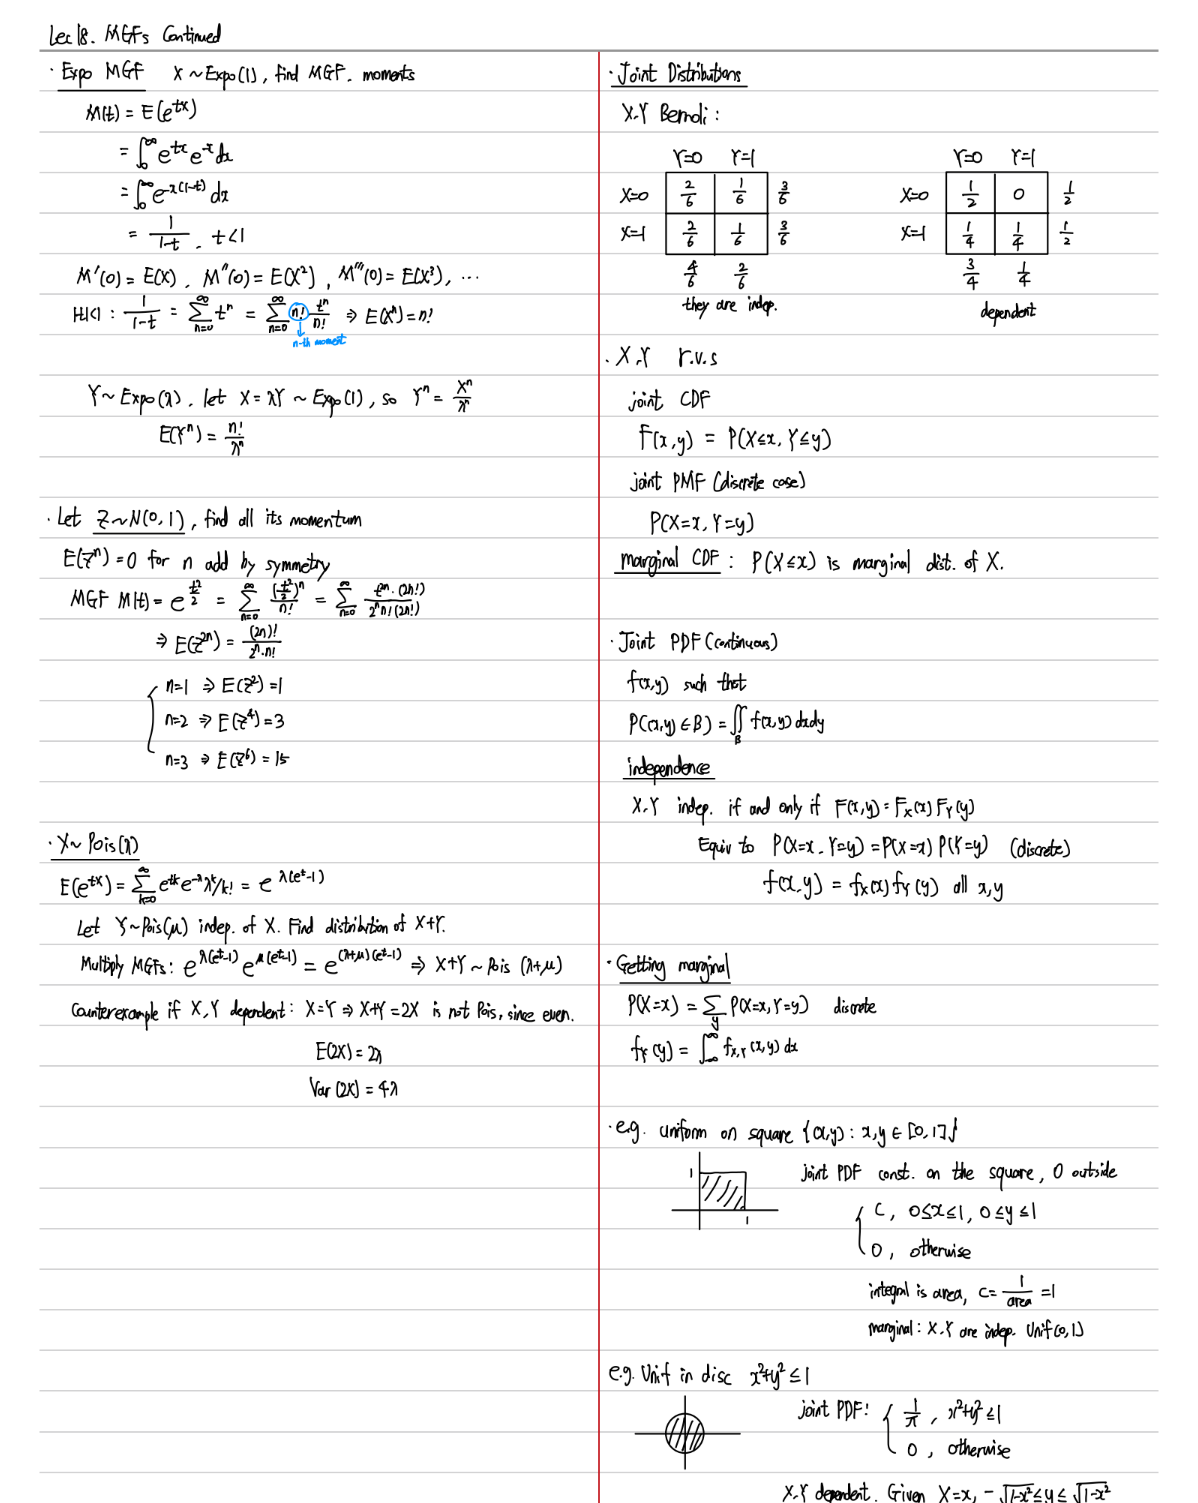 Lec 18. MGFs Continued
· Expo MGF X ~ Expo(1), find MGF. moments
M(t) = E(e^{tx})
= ∫_0^∞ e^{tx} e^{-x} dx
= ∫_0^∞ e^{-x(1-t)} dx
= 1/(1-t) . t<1
M'(0) = E(X) , M''(0) = E(X²) , M'''(0) = E(X³), ...
|t|<1 : 1/(1-t) = Σ_{n=0}^∞ t^n = Σ_{n=0}^∞ n! t^n/n! ⇒ E(X^n) = n!
n-th moment
Y ~ Expo(λ). let X = λY ~ Expo(1), so Y^n = X^n/λ^n
E(Y^n) = n!/λ^n
· Let Z~N(0,1), find all its momentum
E(Z^n) = 0 for n add by symmetry
MGF M(t) = e^{t²/2} = Σ_{n=0}^∞ (t²/2)^n/n! = Σ_{n=0}^∞ t^{2n}·(2n!)/(2^n n! (2n!))
⇒ E(Z^{2n}) = (2n)!/(2^n·n!)
n=1 ⇒ E(Z²) = 1
n=2 ⇒ E(Z⁴) = 3
n=3 ⇒ E(Z⁶) = 15
· X ~ Pois(λ)
E(e^{tX}) = Σ_{k=0}^∞ e^{tk} e^{-λ} λ^k/k! = e^{λ(e^t-1)}
Let Y~Pois(μ) indep. of X. Find distribution of X+Y.
Multiply MGFs: e^{λ(e^t-1)} e^{μ(e^t-1)} = e^{(λ+μ)(e^t-1)} ⇒ X+Y ~ Pois (λ+μ)
Counterexample if X,Y dependent: X=Y ⇒ X+Y = 2X is not Pois, since even.
E(2X) = 2λ
Var (2X) = 4λ
· Joint Distributions
X.Y Bernoli :
Y=0 Y=1
X=0 2/6 1/6 3/6
X=1 2/6 1/6 3/6
4/6 2/6
they are indep.
Y=0 Y=1
X=0 1/2 0 1/2
X=1 1/4 1/4 1/2
3/4 1/4
dependent
· X.Y r.v.s
joint CDF
F(x,y) = P(X≤x, Y≤y)
joint PMF (discrete case)
P(X=x, Y=y)
marginal CDF : P(X≤x) is marginal dist. of X.
· Joint PDF (continuous)
f(x,y) such that
P((x,y)∈B) = ∬_B f(x,y) dxdy
independence
X.Y indep. if and only if F(x,y) = F_X(x) F_Y(y)
Equiv to P(X=x . Y=y) = P(X=x) P(Y=y) (discrete)
f(x,y) = f_X(x) f_Y(y) all x,y
· Getting marginal
P(X=x) = Σ_y P(X=x, Y=y) discrete
f_Y(y) = ∫_{-∞}^∞ f_{X,Y}(x,y) dx
· e.g. uniform on square {(x,y) : x,y ∈ [0,1]}
1
1
joint PDF const. on the square, 0 outside
c, 0≤x≤1, 0≤y≤1
0, otherwise
integral is area, c = 1/area = 1
marginal : X.Y are indep. Unif(0,1)
e.g. Unif in disc x²+y² ≤ 1
joint PDF: 1/π , x²+y² ≤ 1
0, otherwise
X.Y dependent. Given X=x, -√(1-x²) ≤ y ≤ √(1-x²)